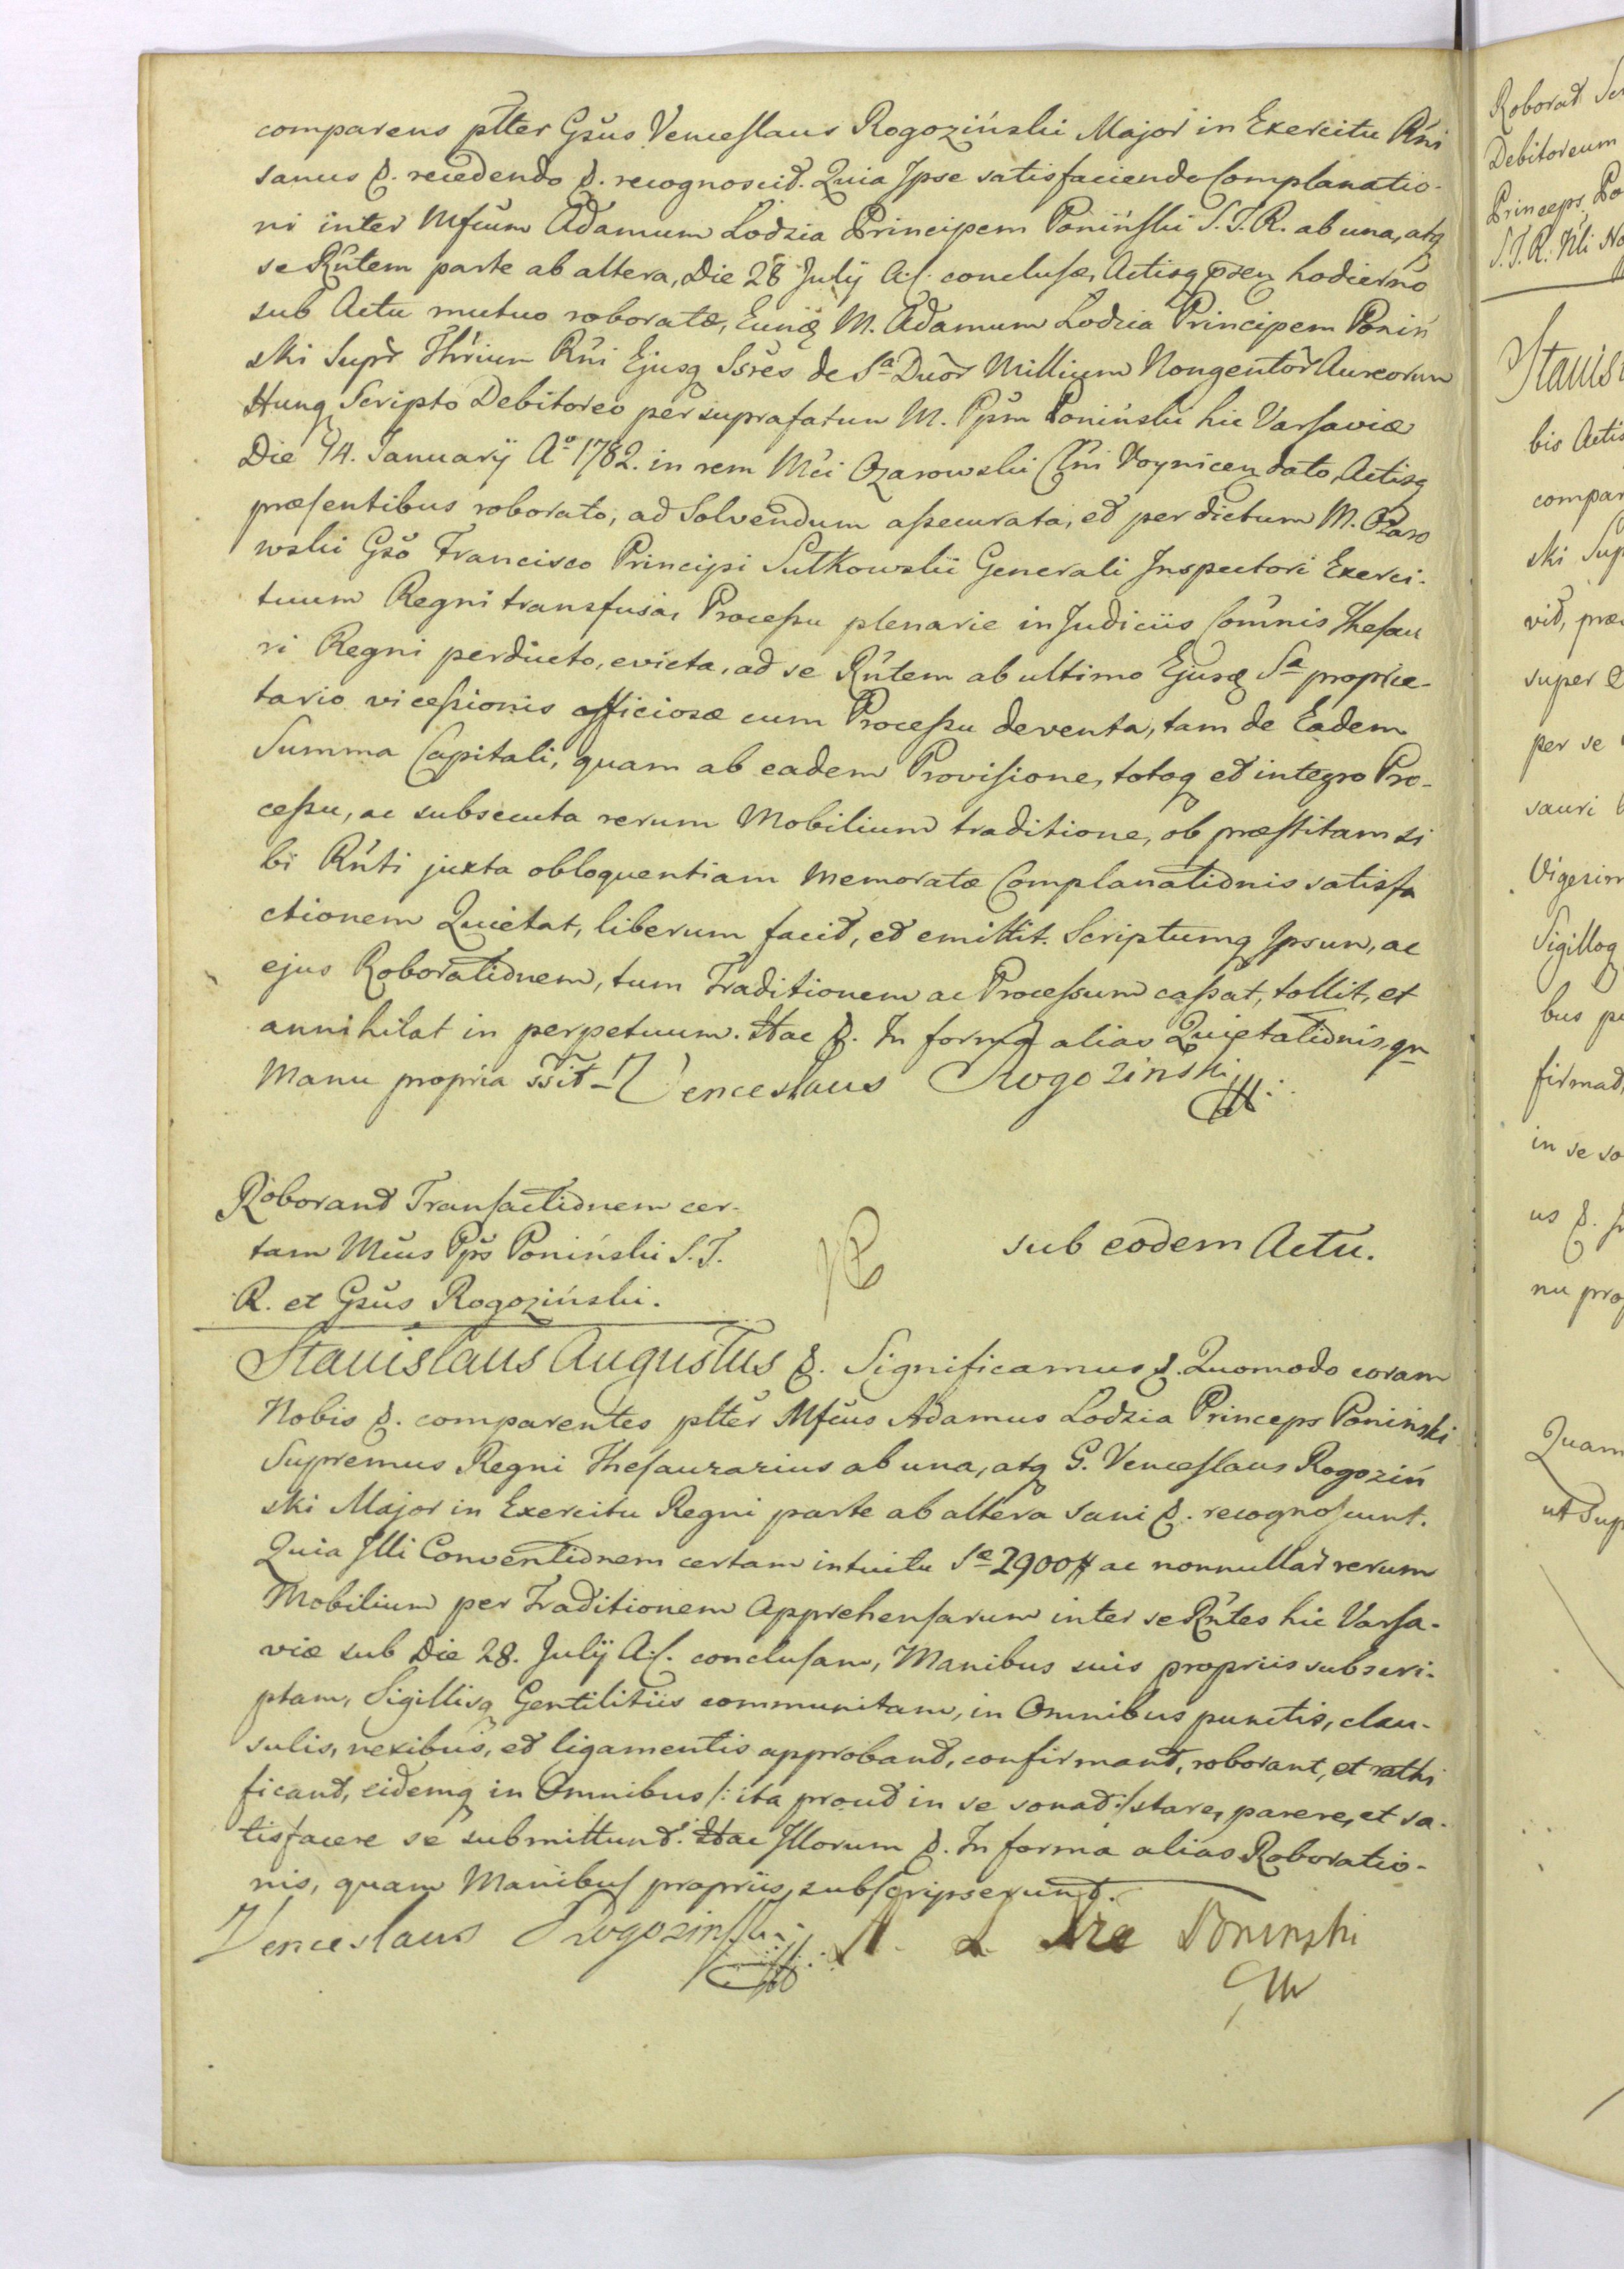 comparens pltter Gsus Venceslaus Rogoziński Major in Exercitu Rni
sanus &. recedendo &. recognoscit. Quia Ipse satisfaciendo Complanatio-
ni inter Mfcum Adamum Lodzia Principem Poniński S.T.R. ab una, atq
se Rntem parte ab altera, Die 28 July A:C. conclusæ, Actisq præsen hodierno
sub Actu mutuo roboratæ, Eundq M. Adamum Lodzia Principem Poniń
ski Supr Thrium Rni Ejusq Ssres de Sa Duor Millium Nongentor Aureorum
Hung Scripto Debitoreo per suprafatum M. Ppm Poniński hic Varsaviæ
Die 14. January Ao 1782. in rem Mci Ozarowski Clni Voynicen dato, Actisq
præsentibus roborato, ad Solvendum assecurata, et per dictum M. Ozaro
wski Gso Francisco Principi Sułkowski Generali Inspectori Exerci-
tuum Regni transfusa, Processu plenarie in Judiciis Comnis Thesau
ri Regni perducto, evicta, ad se Rntem ab ultimo Ejusq Sæ proprie-
tario vi cessionis officiosæ cum Processu deventa, tam de Eadem
Summa Capitali, quam ab eadem Provisione, totoq et integro Pro-
cessu, ac subsecuta rerum Mobilium traditione, ob præstitam si
bi Rnti juxta obloquentiam memoratæ Complanationis satisfa
ctionem Quietat, liberum facit, et emittit. Scriptumq Ipsum, ac
ejus Roborationem, tum Traditionem ac Processum cassat, tollit, et
annihilat in perpetuum. Hac &. In forma alias Quietationis, qn
Manu propria ssit – Venceslaus Rogozinski
Roborant Transactionem cer-
tam Mcus Pps Poniński S.T.
R. et Gsus Rogoziński.
sub eodem Actu.
Stanislaus Augustus &. Significamus &. Quomodo coram
Nobis &. comparentes pltter Mfcus Adamus Lodzia Princeps Poniński
Supremus Regni Thesaurarius ab una, atq G. Venceslaus Rogoziń
ski Major in Exercitu Regni parte ab altera sani &. recognoscunt.
Quia Illi Conventionem certam intuitu Sæ 2900 # ac nonnullar rerum
Mobilium per Traditionem Apprehensarum inter se Rntes hic Varsa-
viæ sub Die 28. July A:C. conclusam, Manibus suis propriis subscri-
ptam, Sigillisq Gentilitiis communitam, in Omnibus punctis, clau-
sulis, nexibus, et ligamentis approbant, confirmant, roborant, et rathi
ficant, eidemq in Omnibus /: ita prout in se sonat :/ stare, parere, et sa-
tisfacere se submittunt. Hac Illorum &. In forma alias Roboratio-
nis, quam Manibus propriis subscripserunt.
Venceslaus Rogozinski A. L. Poninski
Roborat
Debitoreum
Princeps Po
S.T.R.
Stanis
bis Actis
compar
ski Sup
vit, præ
super
per se
sauri
Vigesim
Sigilloq
bus
firmat,
in se so
us &.
nu pro
Quam
ut Sup